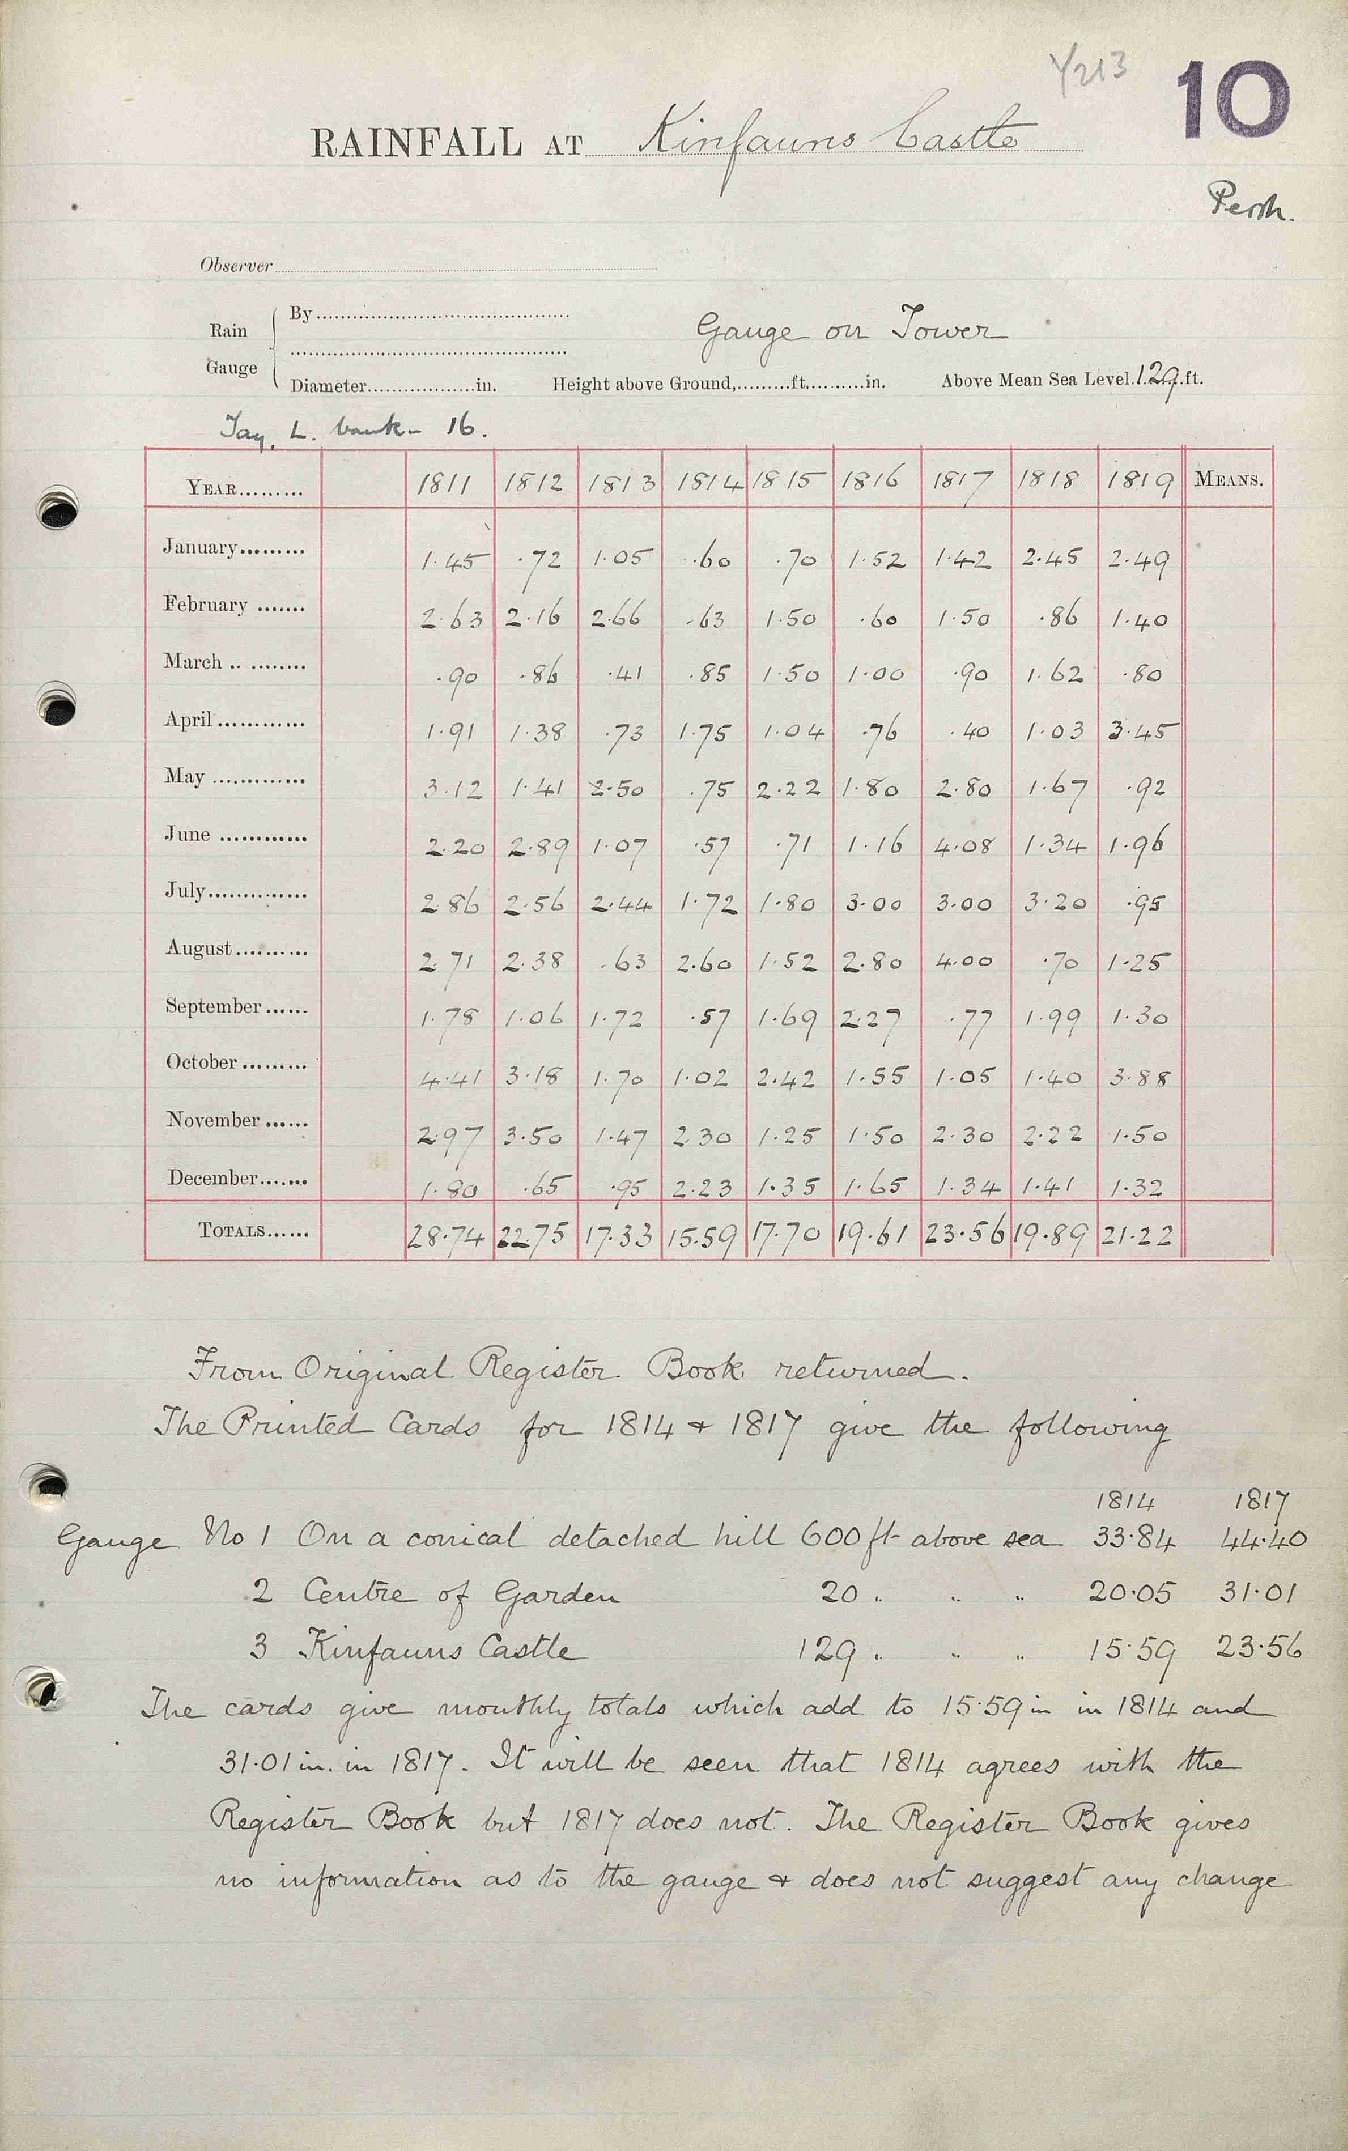 Y213 10
RAINFALL AT Kinfauns Castle
Perth.
Observer
Rain Gauge By
Gauge on Tower
Diameter in. Height above Ground, ft. in. Above Mean Sea Level 129 ft.
Tay, L. bank - 16.
YEAR 1811 1812 1813 1814 1815 1816 1817 1818 1819 MEANS.
January 1.45 .72 1.05 .60 .70 1.52 1.42 2.45 2.49
February 2.63 2.16 2.66 .63 1.50 .60 1.50 .86 1.40
March .90 .86 .41 .85 1.50 1.00 .90 1.62 .80
April 1.91 1.38 .73 1.75 1.04 .76 .40 1.03 3.45
May 3.12 1.41 2.50 .75 2.22 1.80 2.80 1.67 .92
June 2.20 2.89 1.07 .57 .71 1.16 4.08 1.34 1.96
July 2.86 2.56 2.44 1.72 1.80 3.00 3.00 3.20 .95
August 2.71 2.38 .63 2.60 1.52 2.80 4.00 .70 1.25
September 1.78 1.06 1.72 .57 1.69 2.27 .77 1.99 1.30
October 4.41 3.18 1.70 1.02 2.42 1.55 1.05 1.40 3.88
November 2.97 3.50 1.47 2.30 1.25 1.50 2.30 2.22 1.50
December 1.80 .65 .95 2.23 1.35 1.65 1.34 1.41 1.32
TOTALS 28.74 22.75 17.33 15.59 17.70 19.61 23.56 19.89 21.22
From Original Register Book returned.
The Printed Cards for 1814 & 1817 give the following
1814 1817
Gauge No 1 On a conical detached hill 600 ft above sea 33.84 44.40
2 Centre of Garden 20 " " " 20.05 31.01
3 Kinfauns Castle 129 " " " 15.59 23.56
The cards give monthly totals which add to 15.59 in in 1814 and
31.01 in. in 1817. It will be seen that 1814 agrees with the
Register Book but 1817 does not. The Register Book gives
no information as to the gauge & does not suggest any change